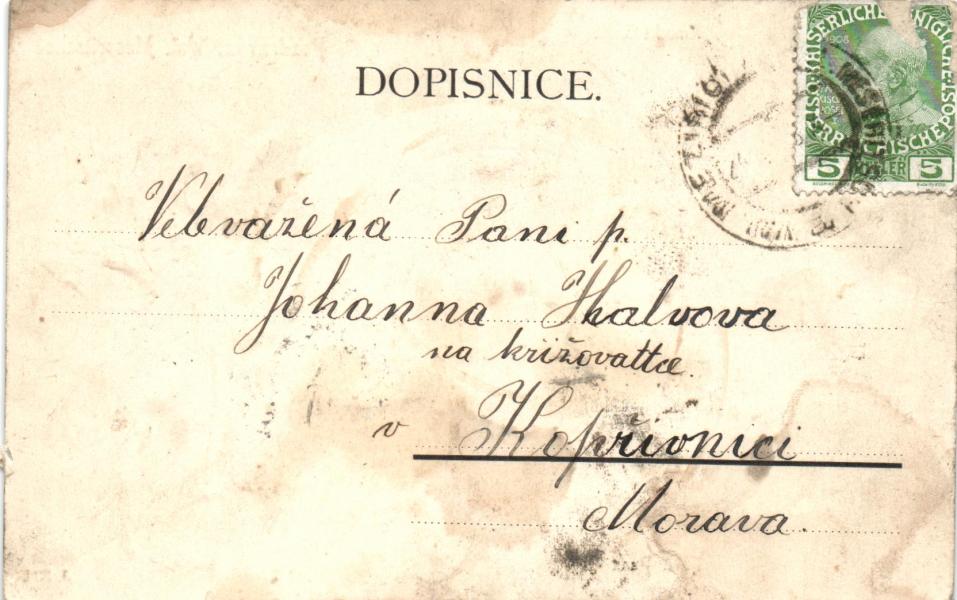 DOPISNICE.
1908
KAISERLICHE KÖNIGLICHE ÖSTERREICHISCHE POST
5 HELLER 5
Velevažená Paní p.
Johanna Hkalvova
na križovatce
v Kopřivnici
Morava.